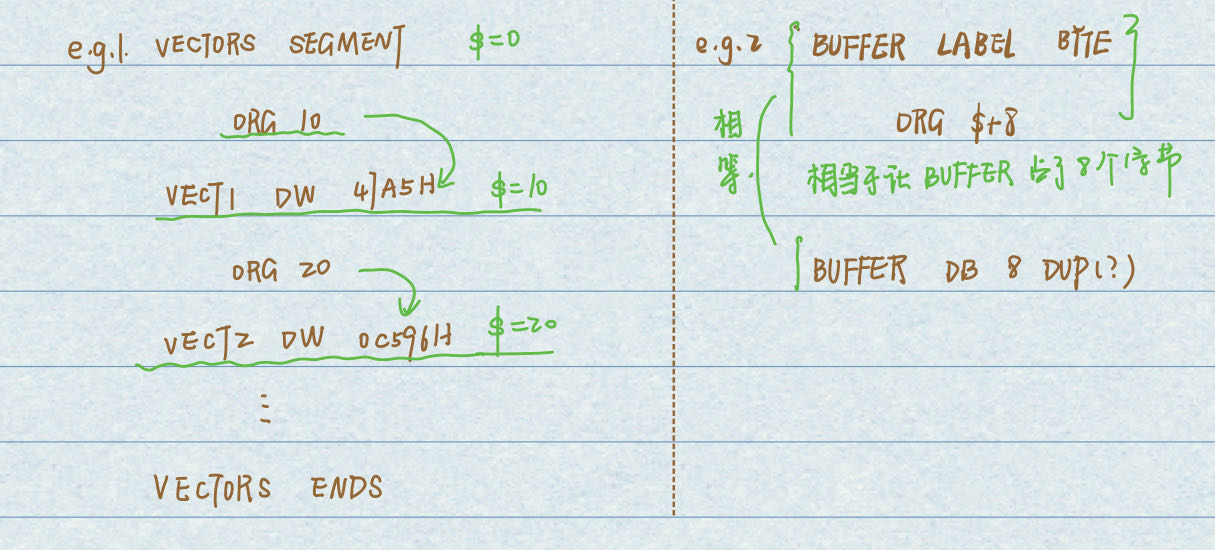 e.g.1. VECTORS SEGMENT $=0
ORG 10
VECT1 DW 47A5H $=10
ORG 20
VECT2 DW 0C596H $=20
⋮
VECTORS ENDS
e.g.2 BUFFER LABEL BYTE
ORG $+8
相等.
相当于让 BUFFER 占了 8 个字节
BUFFER DB 8 DUP(?)